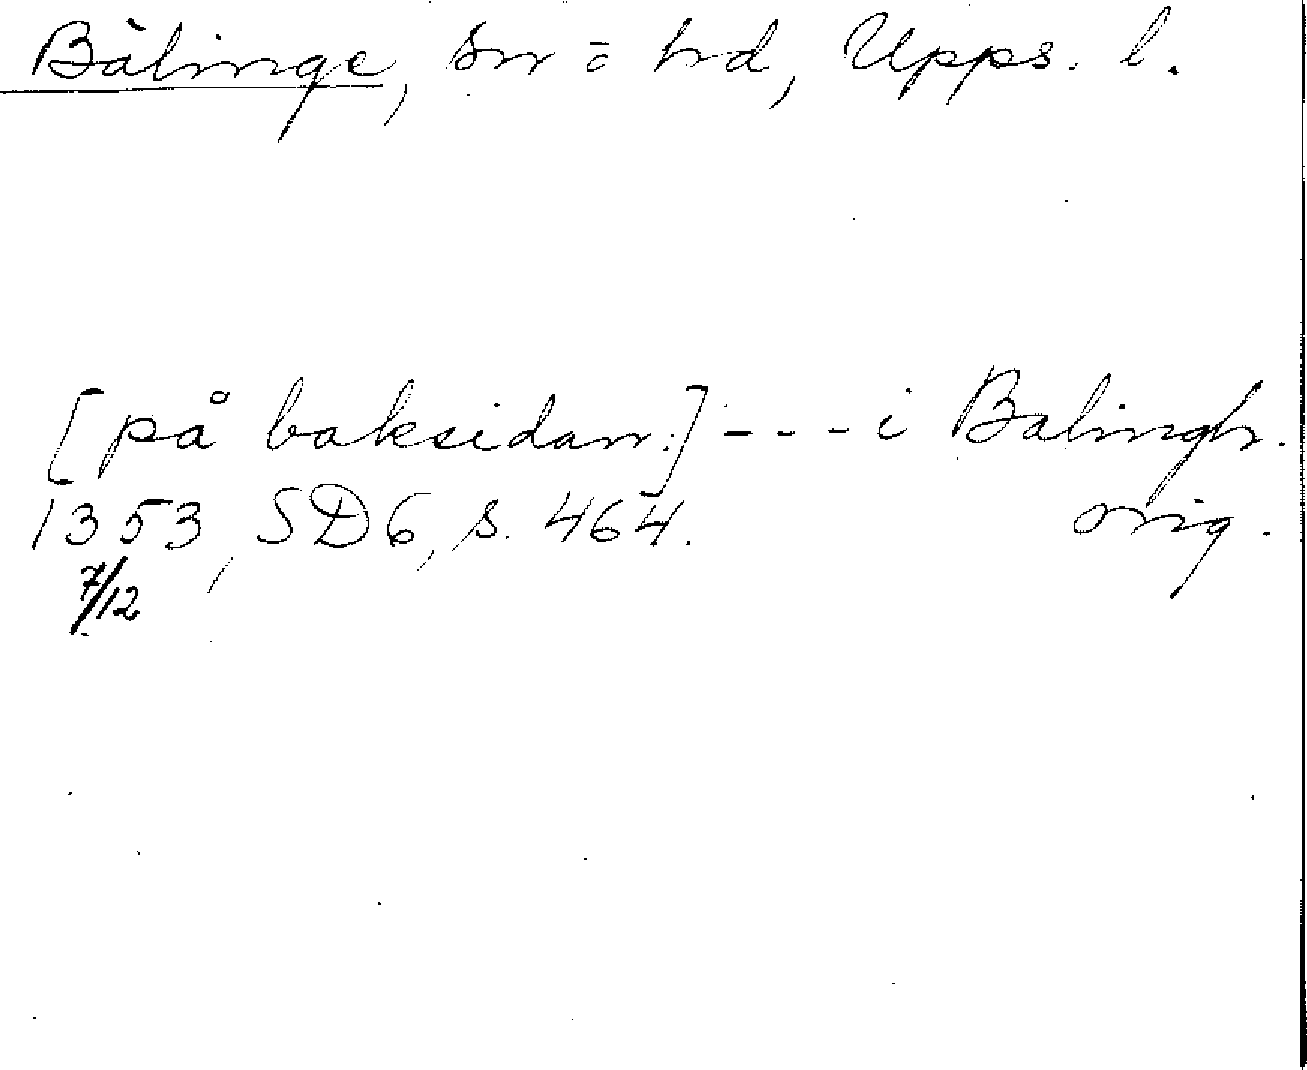 Bälinge, sn = hd, Upps. l.
[på baksidan:] - - - i Balingh.
1353, SD6, s. 464. orig.
7/12